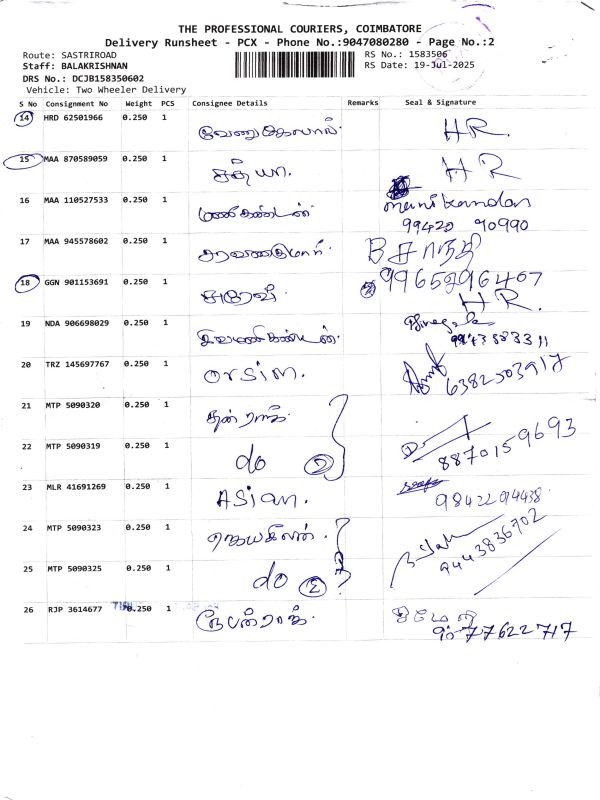 THE PROFESSIONAL COURIERS, COIMBATORE
Delivery Runsheet - PCX - Phone No.:9047080280 - Page No.:2
Route: SASTRIROAD
RS No.: 1583506
Staff: BALAKRISHNAN
RS Date: 19-Jul-2025
DRS No.: DCJB158350602
Vehicle: Two Wheeler Delivery
S No Consignment No Weight PCS Consignee Details Remarks Seal & Signature
14 HRD 62501966 0.250 1 வேணுகோபால். HR.
15 MAA 870589059 0.250 1 சத்யா. HR
16 MAA 110527533 0.250 1 மணிகண்டன் manikandan
99420 90990
17 MAA 945578602 0.250 1 சரவணகுமார். B சாந்தி
18 GGN 901153691 0.250 1 9965296407
HR.
19 NDA 906698029 0.250 1
20 TRZ 145697767 0.250 1 Orsin. 6382203917
21 MTP 5090320 0.250 1
22 MTP 5090319 0.250 1 do 2 8870159693
23 MLR 41691269 0.250 1 ASian. 9842294438
24 MTP 5090323 0.250 1 9443836702
25 MTP 5090325 0.250 1 do
26 RJP 3614677 0.250 1